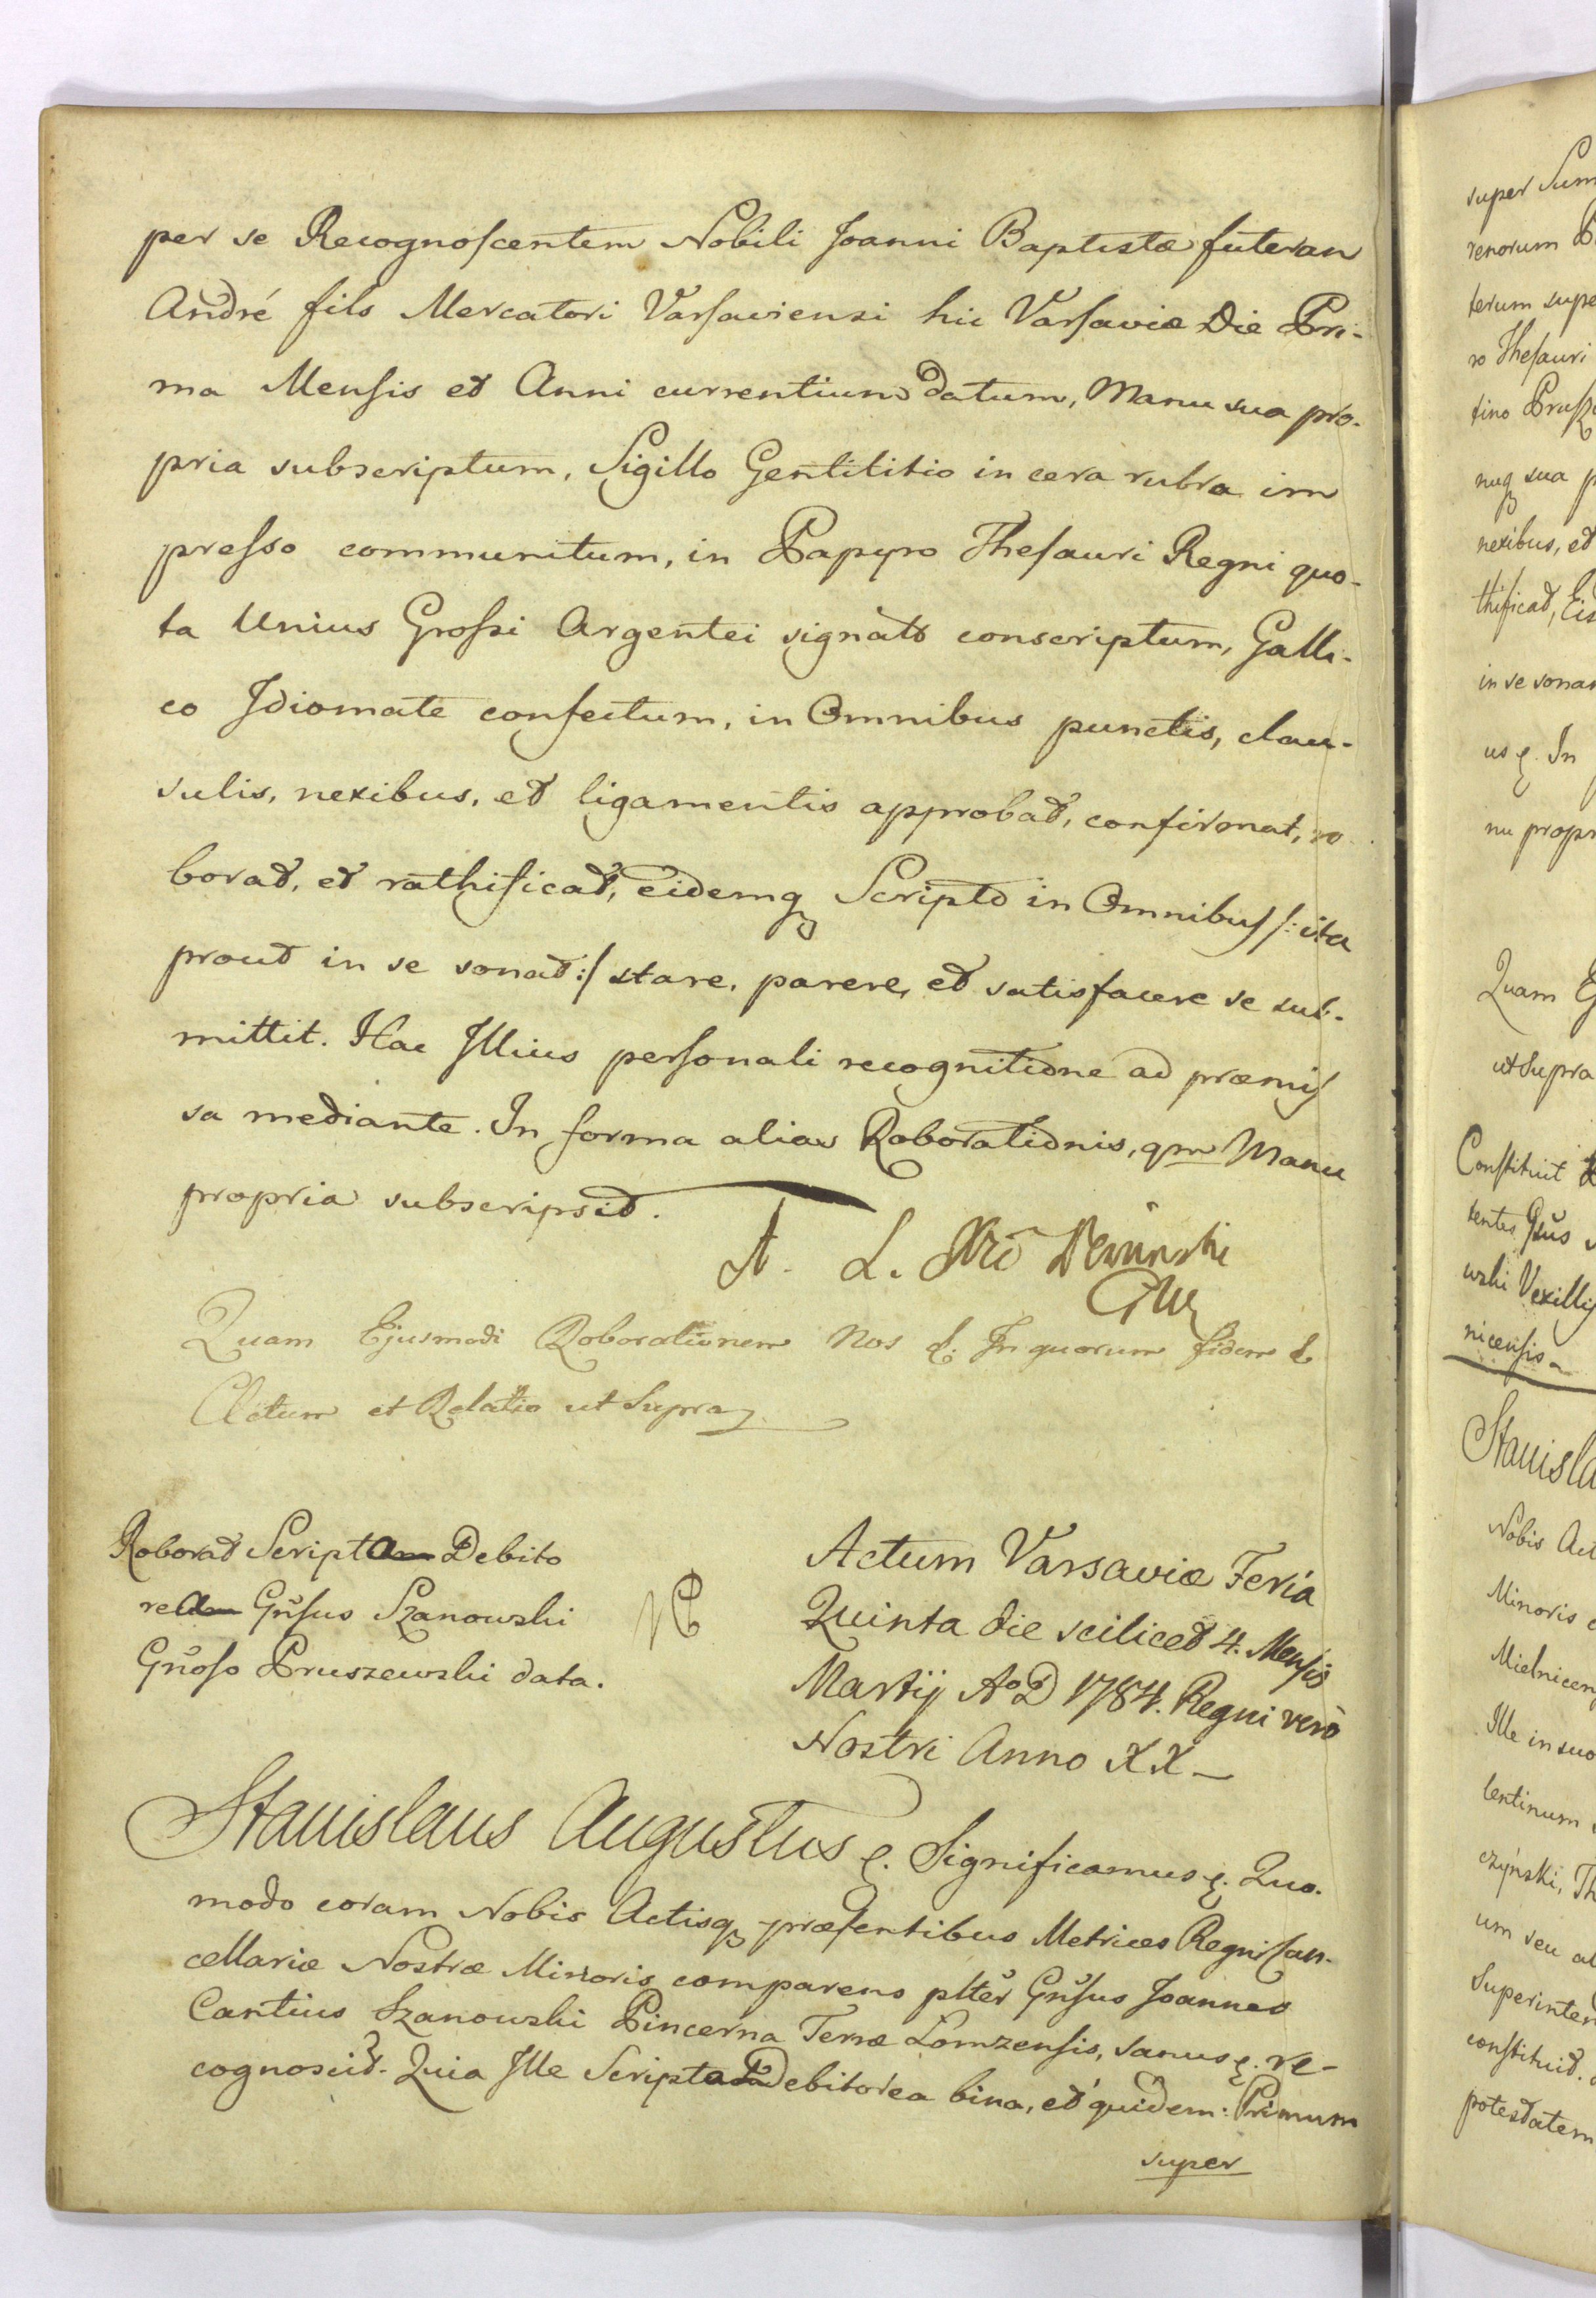 per se Recognoscentem Nobili Joanni Baptistæ futeran
André fils Mercatori Varsaviensi hic Varsaviæ Die Pri-
ma Mensis et Anni currentium datum, Manu sua pro-
pria subscriptum, Sigillo Gentilitio in cera rubra im
presso communitum, in Papyro Thesauri Regni quo-
ta Unius Grossi Argentei signato conscriptum, Galli-
co Idiomate confectum, in Omnibus punctis, clau-
sulis, nexibus, et ligamentis approbat, confirmat, ro-
borat, et rathificat, eidemq Scripto in Omnibus /: ita
prout in se sonat :/ stare, parere, et satisfacere se sub-
mittit. Hac Illius personali recognitione ad præmis
sa mediante. In forma alias Roborationis, qm Manu
propria subscripsit.
A. L.
Quam Ejusmodi Roborationem Nos &: In quorum fidem &
Actum et Relatio ut Supra
Roborat Script Debito
re Gnsus Szanowski
Gnoso Pruszewski data.
Actum Varsaviæ Feria
Quinta die scilicet 4. Mensis
Martij Ao D 1784. Regni verò
Nostri Anno XX
Stanislaus Augustus &. Significamus &. Quo-
modo coram Nobis Actisq præsentibus Metrices Regni Can-
cellariæ Nostræ Minoris comparens plter Gnsus Joannes
Cantius Szanowski Pincerna Terræ Lomzensis, sanus &. re-
cognoscit. Quia Ille Scripta Debitorea bina, et quidem: Primum
super
super Sum
renorum
terum supe
ro Thesauri
tino Prusz
nuq sua p
nexibus, et
thificat, Ei
in se sona
us &. In
nu propr
Quam E
ut Supra
Constituit
tentes Gsus
wski Vexilli
nicensis
Stanisla
Nobis Act
Minoris c
Mielnicen
Ille in suo
lentinum
czynski, Th
um seu al
Superinten
constituit.
potestatem